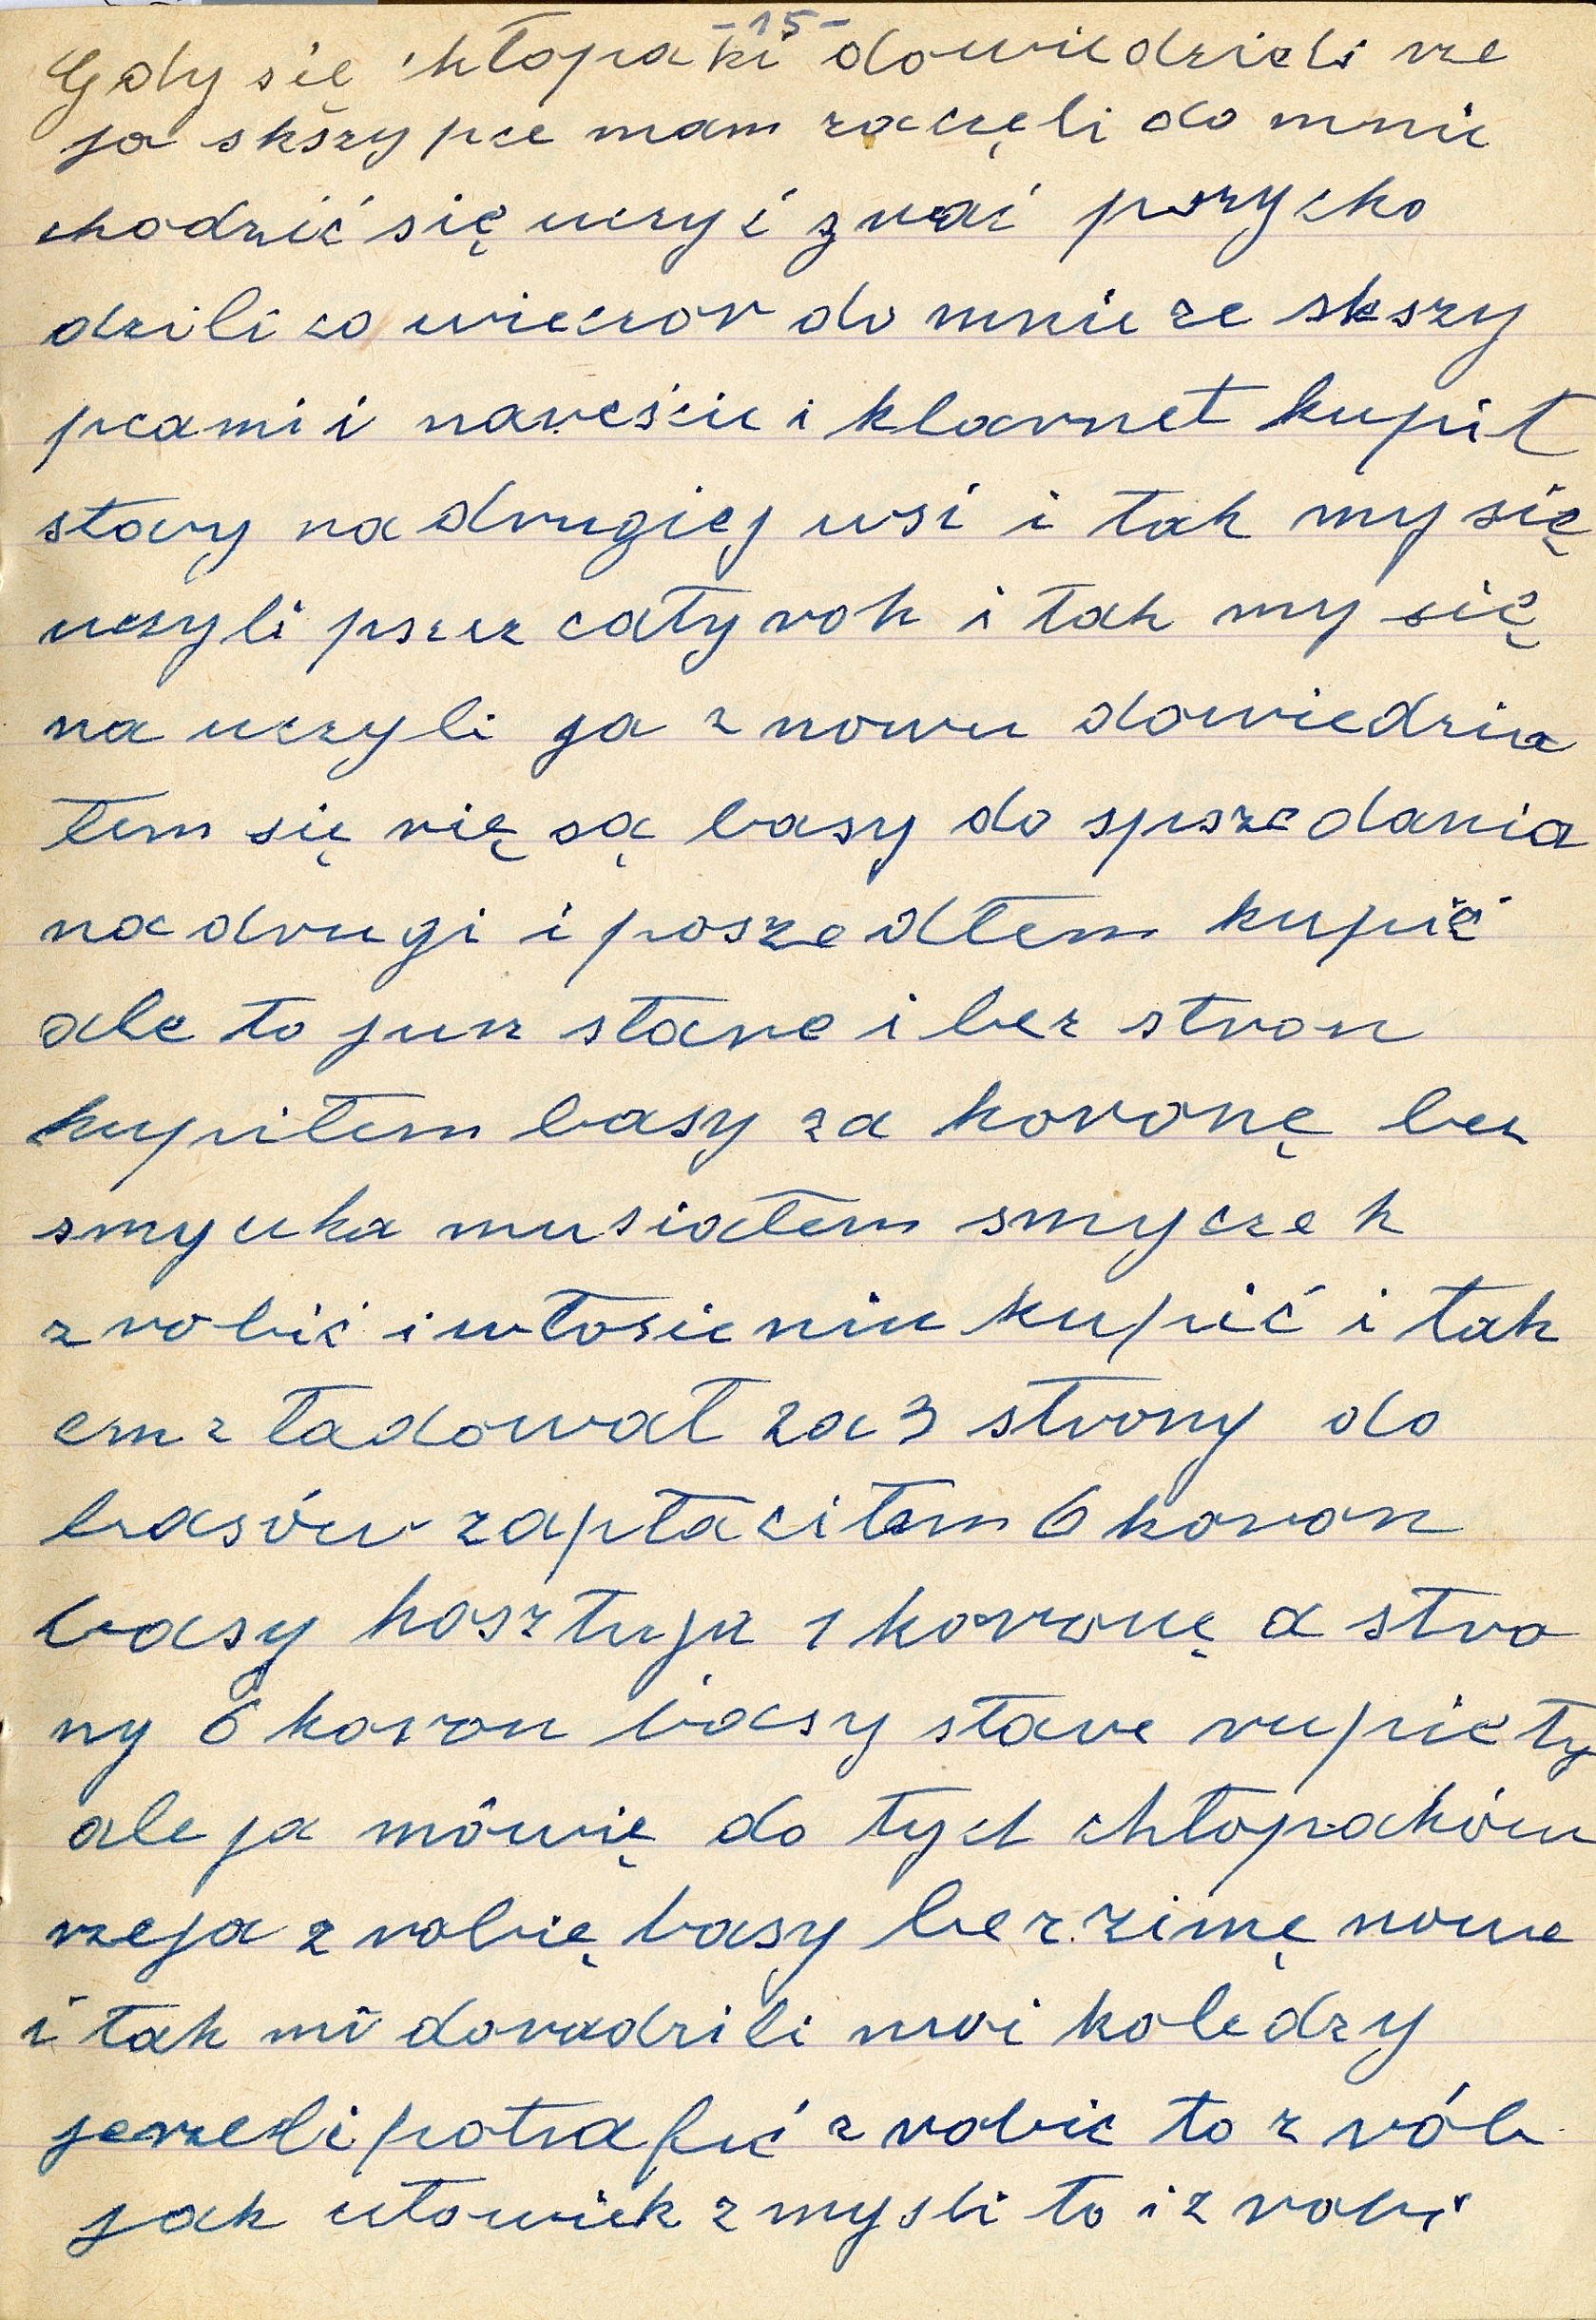 -15-
Gdy się chłopaki dowiedzieli rze
ja skszypce mam zaczęli do mnie
chodzić się uczyć grać pszycho
dzili co wieczor do mnie ze skszy
pcami i nareście i klarnet kupił
stary na drugiej wsi i tak my się
uczyli pszez cały rok i tak my się
na uczyli ja z nowu dowiedzia
łem się rię są basy do spszedania
na drugi i poszedłem kupić
ale to jusz stare i bez stron
kupiłem basy za koronę bez
smycka musiałem smyczek
z robić i włosienie kupić i tak
em z ładował za 3 strony do
basów zapłaciłem 6 koron
basy kosztują 1 koronę a stro
ny 6 koron basy stare rupiety
ale ja mówię do tych chłopaków
rzeja z robię basy bez zimę nowe
i tak mi doradzili moi koledzy
jerzeli potrafić z robić to z rób
jak człowiek z myśli to i z robi